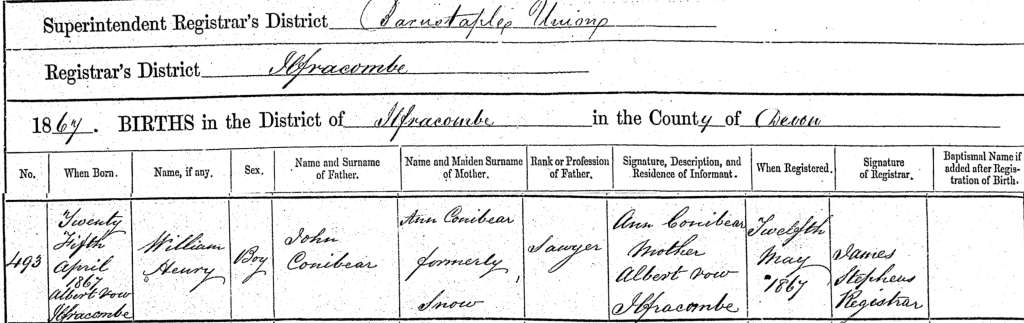 Superintendent Registrar's District Barnstaple Union
Registrar's District Ilfracombe
1867. BIRTHS in the District of Ilfracombe in the County of Devon
No. When Born. Name, if any. Sex. Name and Surname of Father. Name and Maiden Surname of Mother. Rank or Profession of Father. Signature, Description, and Residence of Informant. When Registered. Signature of Registrar. Baptismal Name if added after Registration of Birth.
493
Twenty
Fifth
April
1867
Albert row
Ilfracombe
William
Henry
Boy
John
Conibear
Ann Conibear
formerly
Snow
Sawyer
Ann Conibear
Mother
Albert row
Ilfracombe
Twelfth
May
1867
James
Stephens
Registrar